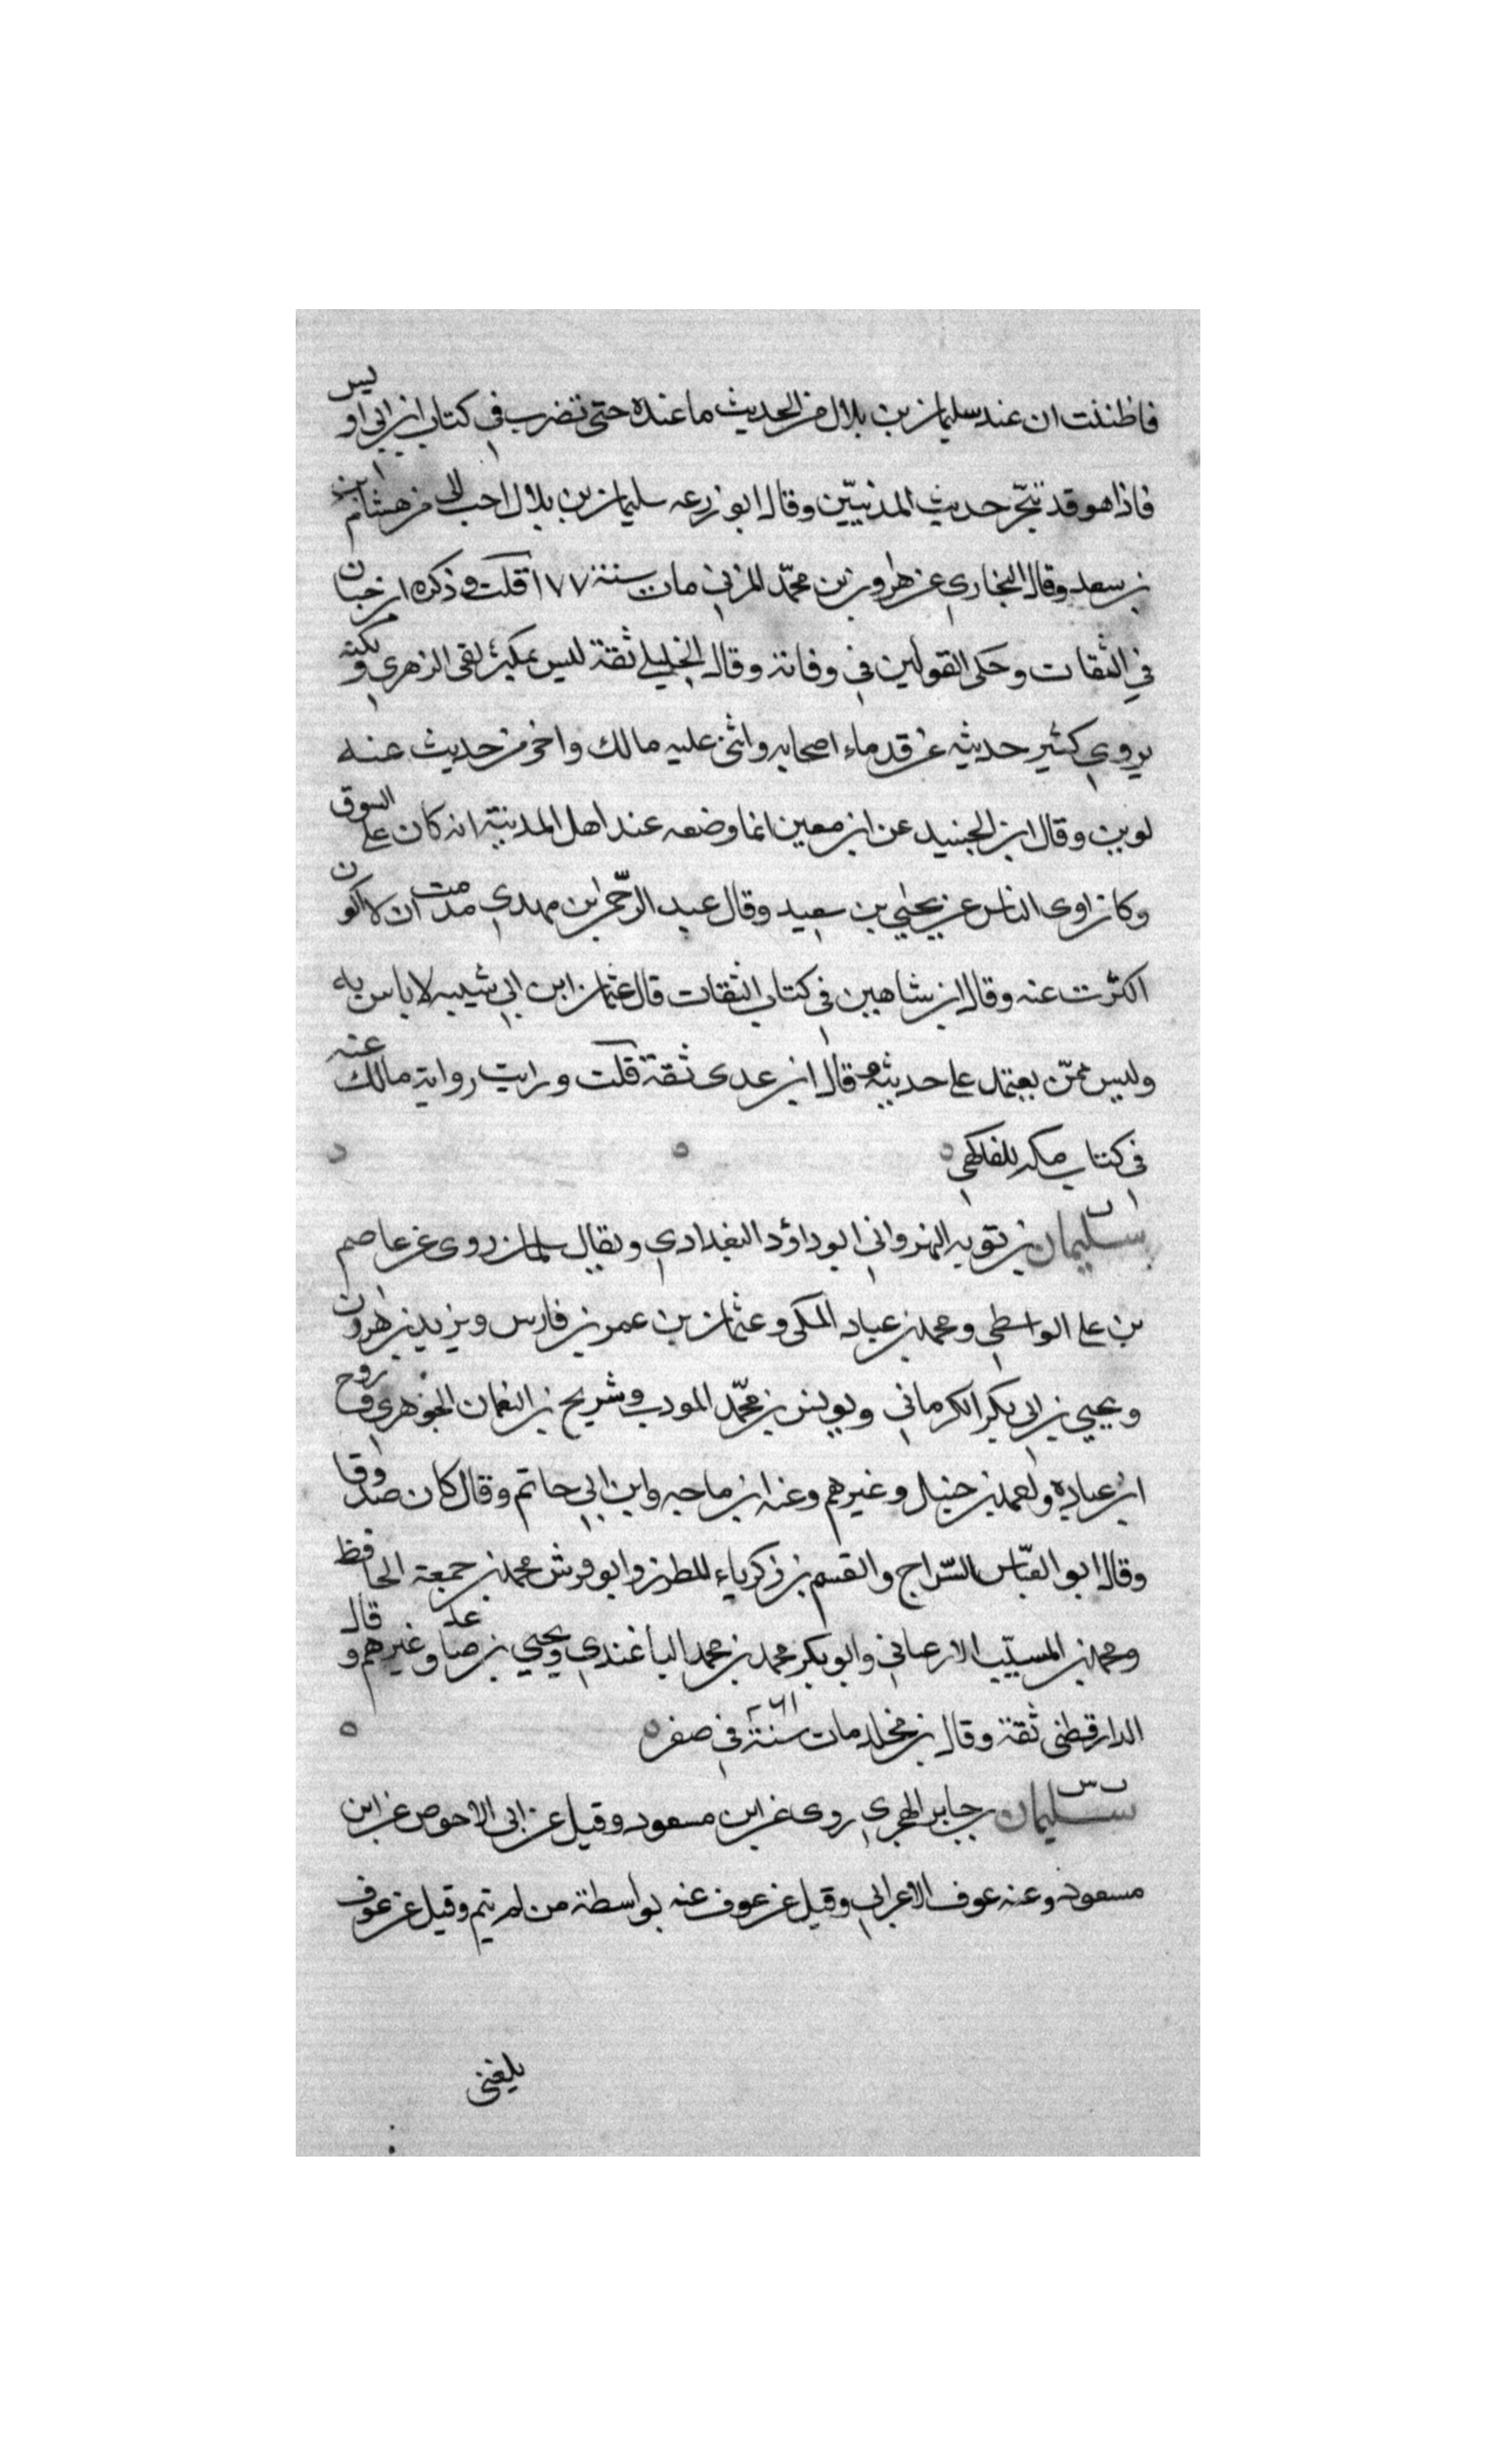 فاظننت ان عند سليمان بن بلال من الحديث ما عنده حتى نضرب في كتاب ابن ابي اويس
فاذا هو قد تبحر حديث المدنيّين وقال ابو زرعه سليمان بن بلال احب الي من هشام ابن
بن سعد وقال البخاري عن هرون بن محمّد المزني مات سنة ١٧٧ قلت وذكره ابن حبان
في الثقات وحكى القولين في وفاتة وقال الخليلي ثقة ليس بمكثر لقى الزهري ولكنه
يروي كثير حديثه عن قدماء اصحابه واثنى عليه مالك واخر من حديث عنه
لوين وقال ابن الجنيد عن ابن معين انما وضعه عند اهل المدينة انه كان على السوق
وكان اروى الناس عن يحيي بن سعيد وقال عبد الرّحمن ابن مهدي ندمت ان لا اكون
اكثرت عنه وقال ابن شاهين في كتاب الثقات قال عثمان ابن ابي شيبه لا باس به
وليس ممّن يعتمد على حديثه وقال ابن عدى ثقة قلت ورايت رواية مالك عنه
في كتاب مكه للفاكهي
سليمان بن توبه النهرواني ابو داؤد البغدادي ويقال سلمان روى عن عاصم
بن على الواسطي ومحمد بن عباد المكى وعثمان بن عمر بن فارس ويزيد بن هرون
ويحيي بن ابي بكير الكرماني ويونس بن محمّد المودب وشريح بن النعمان الجوهري وروح
ابن عباده واحمد بن حنبل وغيرهم وعنه ابن ماجه وابن ابي حاتم وقال كان صدوقا
وقال ابو العبّاس السّراج والقسم بن زكرياء المطرز وابو قريش محمد بن جمعة الحافظ
ومحمد بن المسيّب الارعياني وابو بكر محمد بن محمد الباغندي ويحيي بن صاعد وغيرهم وقال
الدارقطنى ثقة وقال بن مخلد مات سنة ٢٦١ في صفر
سليمان بن جابر الهجري روى عن ابن مسعود وقيل عن ابى الاحوص عن ابن
مسعود وعنه عوف الاعرابي وقيل عن عوف عنه بواسطة من لم يتم وقيل عن عوف
بلغنى